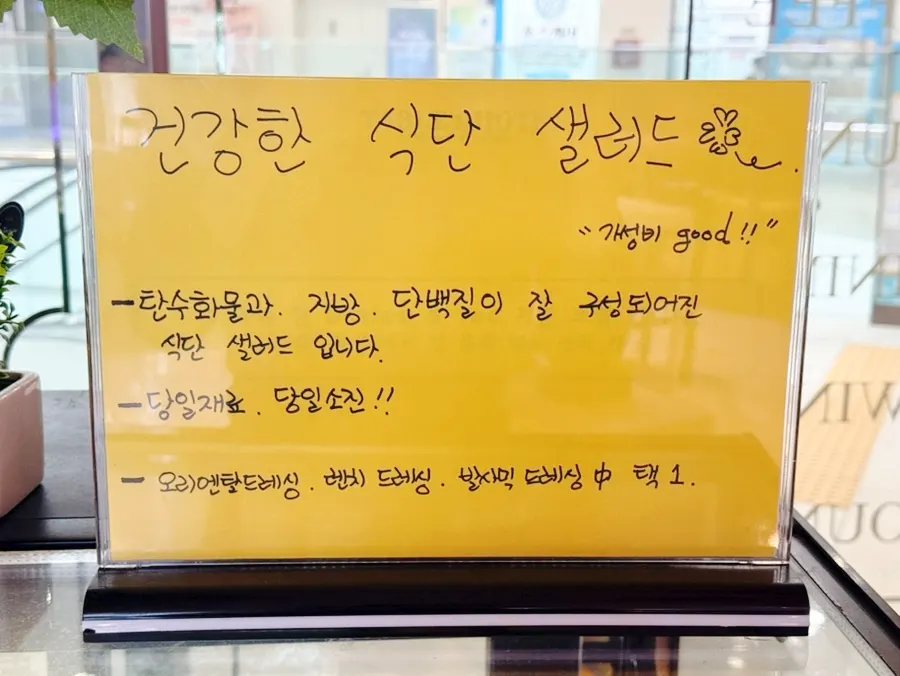 건강한 식단 샐러드
"가성비 good!!"
- 탄수화물과. 지방. 단백질이 잘 구성되어진
식단 샐러드 입니다.
- 당일재료. 당일소진!!
- 오리엔탈드레싱. 렌치 드레싱. 발사믹 드레싱 中 택 1.